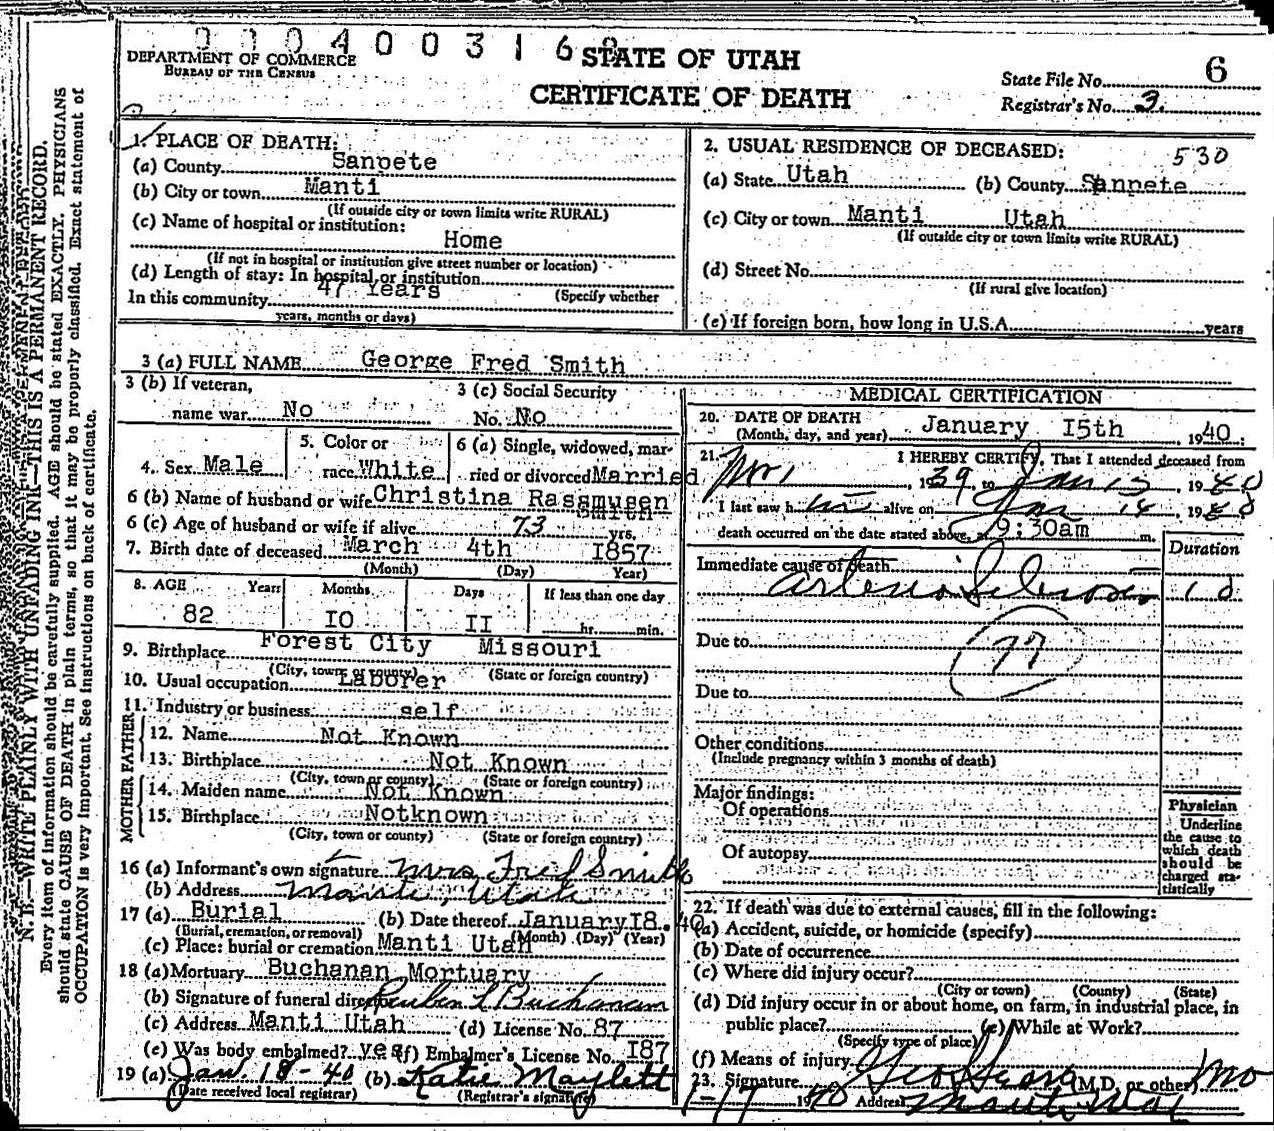 0 0 0 4 0 0 3 1 6
DEPARTMENT OF COMMERCE
BUREAU OF THE CENSUS
STATE OF UTAH
CERTIFICATE OF DEATH
6
State File No.
Registrar's No. 3.
1. PLACE OF DEATH:
(a) County Sanpete
(b) City or town Manti
(If outside city or town limits write RURAL)
(c) Name of hospital or institution:
Home
(If not in hospital or institution give street number or location)
(d) Length of stay: In hospital or institution
In this community 47 Years (Specify whether
years, months or days)
2. USUAL RESIDENCE OF DECEASED: 530
(a) State Utah (b) County Sanpete
(c) City or town Manti Utah
(If outside city or town limits write RURAL)
(d) Street No.
(If rural give location)
(e) If foreign born, how long in U.S.A. years
3 (a) FULL NAME George Fred Smith
3 (b) If veteran,
name war No
3 (c) Social Security
No. No
4. Sex Male
5. Color or
race White
6 (a) Single, widowed, mar-
ried or divorced Married
6 (b) Name of husband or wife Christina Rasmusen
Smith
6 (c) Age of husband or wife if alive 73 yrs.
7. Birth date of deceased March 4th I857
(Month) (Day) Year)
8. AGE Years Months Days If less than one day
82 IO II hr. min.
9. Birthplace Forest City Missouri
(City, town or county) (State or foreign country)
10. Usual occupation Laborer
11. Industry or business self
FATHER
12. Name Not Known
13. Birthplace Not Known
(City, town or county) (State or foreign country)
MOTHER
14. Maiden name Not Known
15. Birthplace Notknown
(City, town or county) (State or foreign country)
16 (a) Informant's own signature Mrs Fred Smith
(b) Address Manti, Utah
17 (a) Burial (b) Date thereof January I8. 40
(Burial, cremation, or removal) (Month) (Day) (Year)
(c) Place: burial or cremation Manti Utah
18 (a) Mortuary Buchanan Mortuary
(b) Signature of funeral director Reuben L Buchanan
(c) Address Manti Utah (d) License No. 87
(e) Was body embalmed? yes (f) Embalmer's License No. I87
19 (a) Jan. 18-40 (b) Katie Maylett
(Date received local registrar) (Registrar's signature)
MEDICAL CERTIFICATION
20. DATE OF DEATH
(Month, day, and year) January I5th , 1940 ;
21. I HEREBY CERTIFY, That I attended deceased from
, 1939, to Jan 15 , 1940
I last saw h im alive on Jan 14 , 1940
death occurred on the date stated above, at 9:30am m.
Duration
Immediate cause of death
Arterio Sclerosis
Due to
Due to
Other conditions
(Include pregnancy within 3 months of death)
Major findings:
Of operations
Of autopsy
Physician
Underline
the cause to
which death
should be
charged sta-
tistically
22. If death was due to external causes, fill in the following:
(a) Accident, suicide, or homicide (specify)
(b) Date of occurrence
(c) Where did injury occur?
(City or town) (County) (State)
(d) Did injury occur in or about home, on farm, in industrial place, in
public place? (e) While at Work?
(Specify type of place)
(f) Means of injury
23. Signature (M.D. or other)
1-17 1940 Address
N. B.—WRITE PLAINLY WITH UNFADING INK—THIS IS A PERMANENT RECORD.
Every item of information should be carefully supplied. AGE should be stated EXACTLY. PHYSICIANS
should state CAUSE OF DEATH in plain terms, so that it may be properly classified. Exact statement of
OCCUPATION is very important. See instructions on back of certificate.